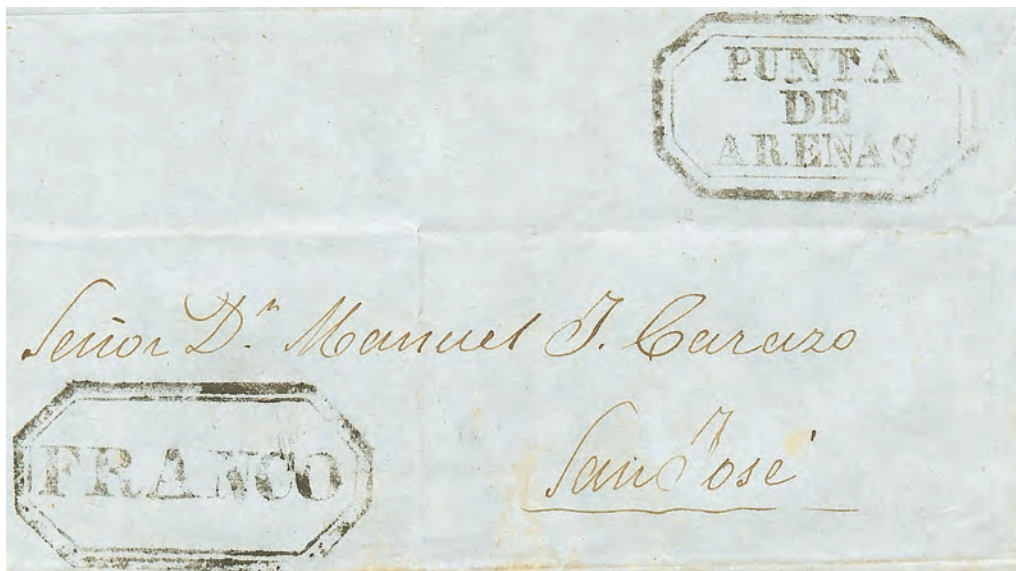 PUNTA
DE
ARENAS
Señor Dn. Manuel J. Carazo
FRANCO
San José